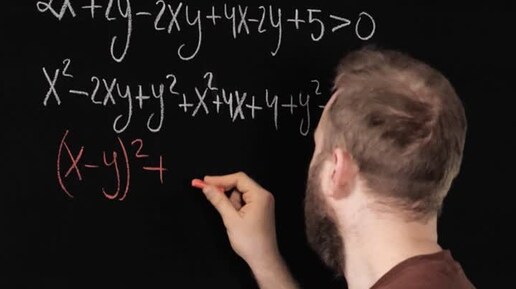 2x+2y-2xy+4x-2y+5>0
x²-2xy+y²+x²+4x+4+y²-
(x-y)²+